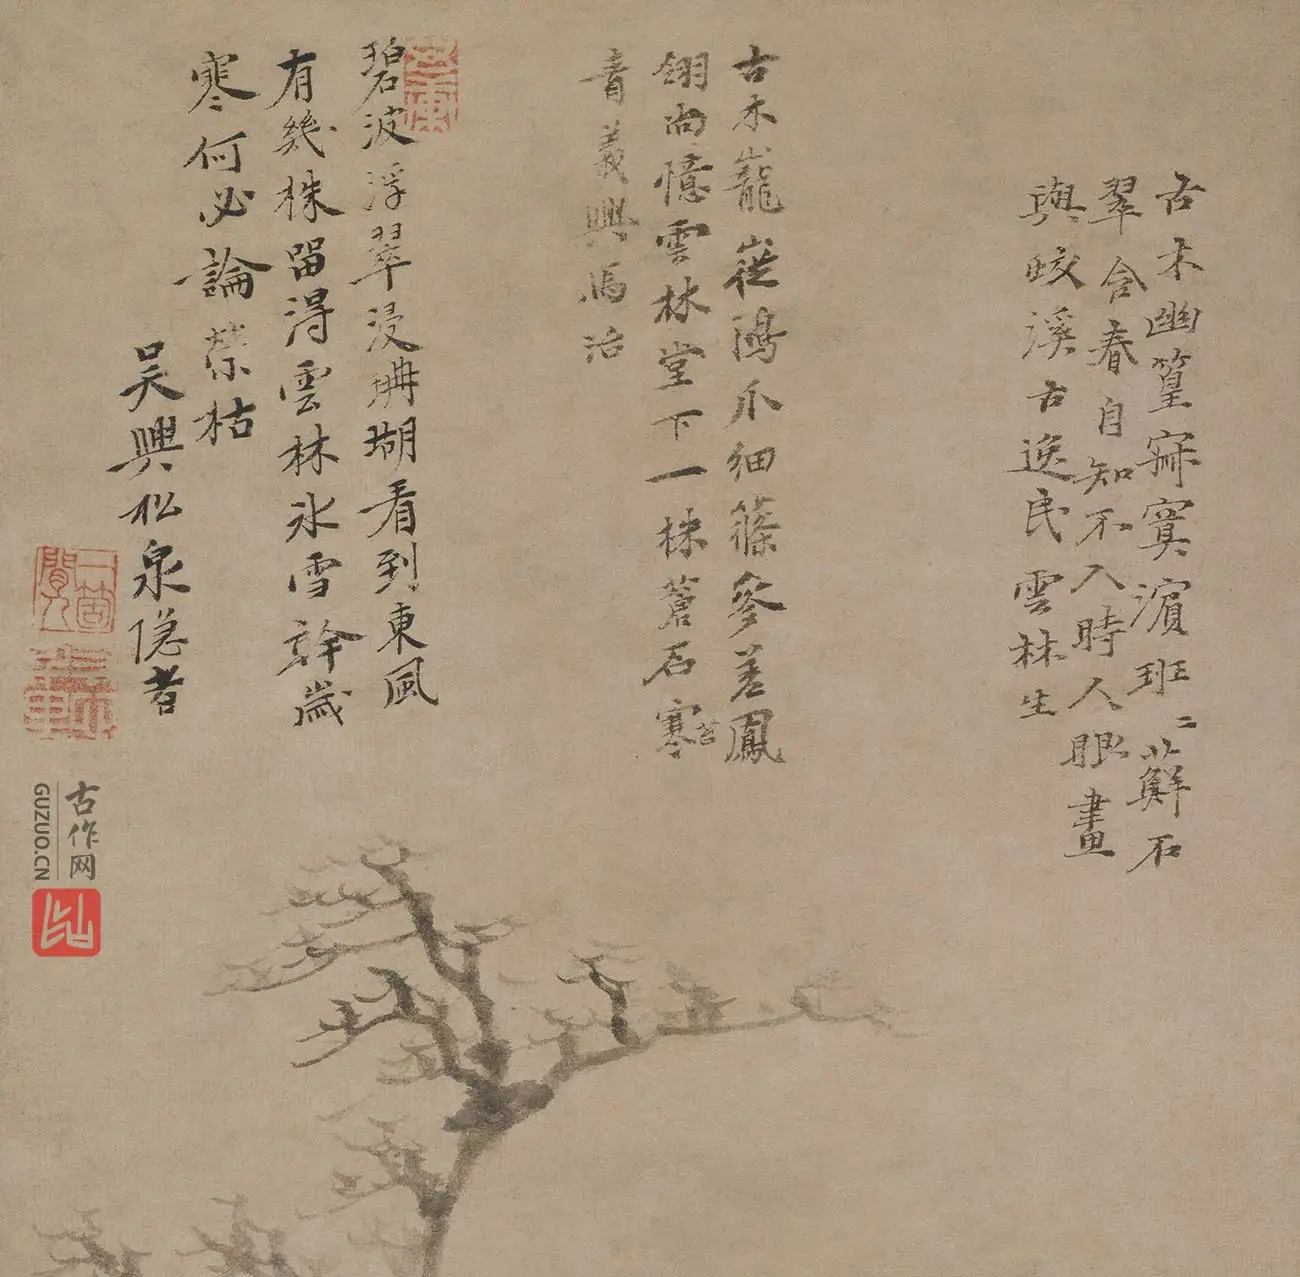 古木幽篁寂寞濱班〻蘚石
翠含春自知不入時人眼畫
與蛟溪古逸民雲林生
古木巃嵷鴻爪細篠參差鳳
翎尚憶雲林堂下一株蒼石寒
苔
青義興馬治
碧波浮翠浸珊瑚看到東風
有幾株留得雲林氷雪幹歲
寒何必論榮枯
吳興松泉隱者
古作网
GUZUO.CN